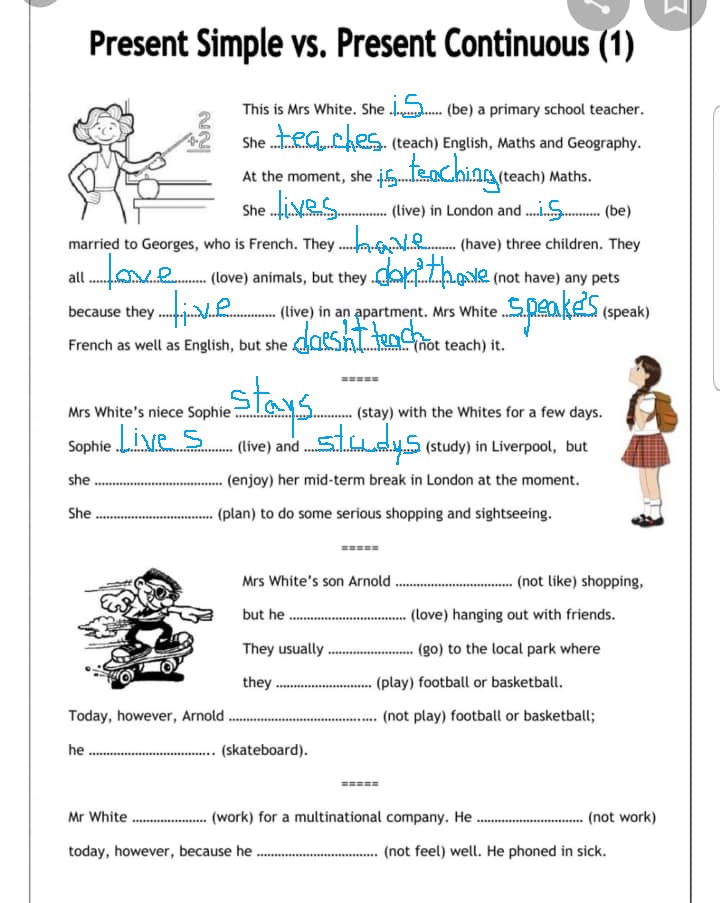 Present Simple vs. Present Continuous (1)
2
+2
This is Mrs White. She ..is.. (be) a primary school teacher.
She ..teaches.. (teach) English, Maths and Geography.
At the moment, she ..is teaching.. (teach) Maths.
She ..lives.. (live) in London and ..is.. (be)
married to Georges, who is French. They ..have.. (have) three children. They
all ..love.. (love) animals, but they ..don't have.. (not have) any pets
because they ..live.. (live) in an apartment. Mrs White ..speake's.. (speak)
French as well as English, but she ..daesh't teach.. (not teach) it.
=====
Mrs White's niece Sophie ..stays.. (stay) with the Whites for a few days.
Sophie ..Lives.. (live) and ..studys.. (study) in Liverpool, but
she ................................ (enjoy) her mid-term break in London at the moment.
She ................................ (plan) to do some serious shopping and sightseeing.
=====
Mrs White's son Arnold ................................ (not like) shopping,
but he ................................ (love) hanging out with friends.
They usually ........................ (go) to the local park where
they ........................... (play) football or basketball.
Today, however, Arnold ......................................... (not play) football or basketball;
he ................................... (skateboard).
=====
Mr White ..................... (work) for a multinational company. He .............................. (not work)
today, however, because he .................................. (not feel) well. He phoned in sick.